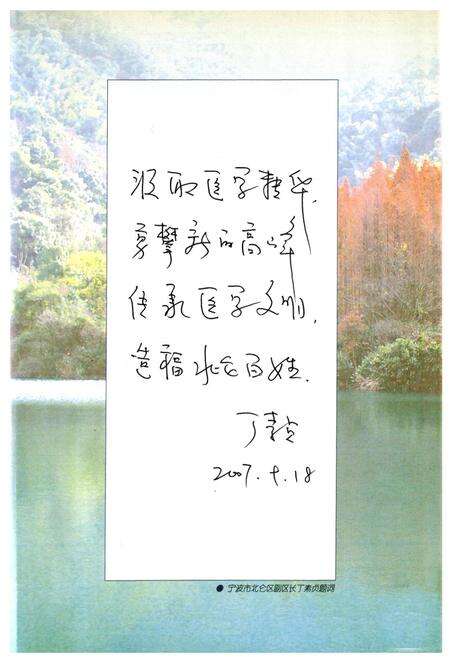 汲取医学精华,
勇攀新的高峰
传承医学文明,
造福北仑百姓.
丁素贞
2007.9.18
● 宁波市北仑区副区长丁素贞题词